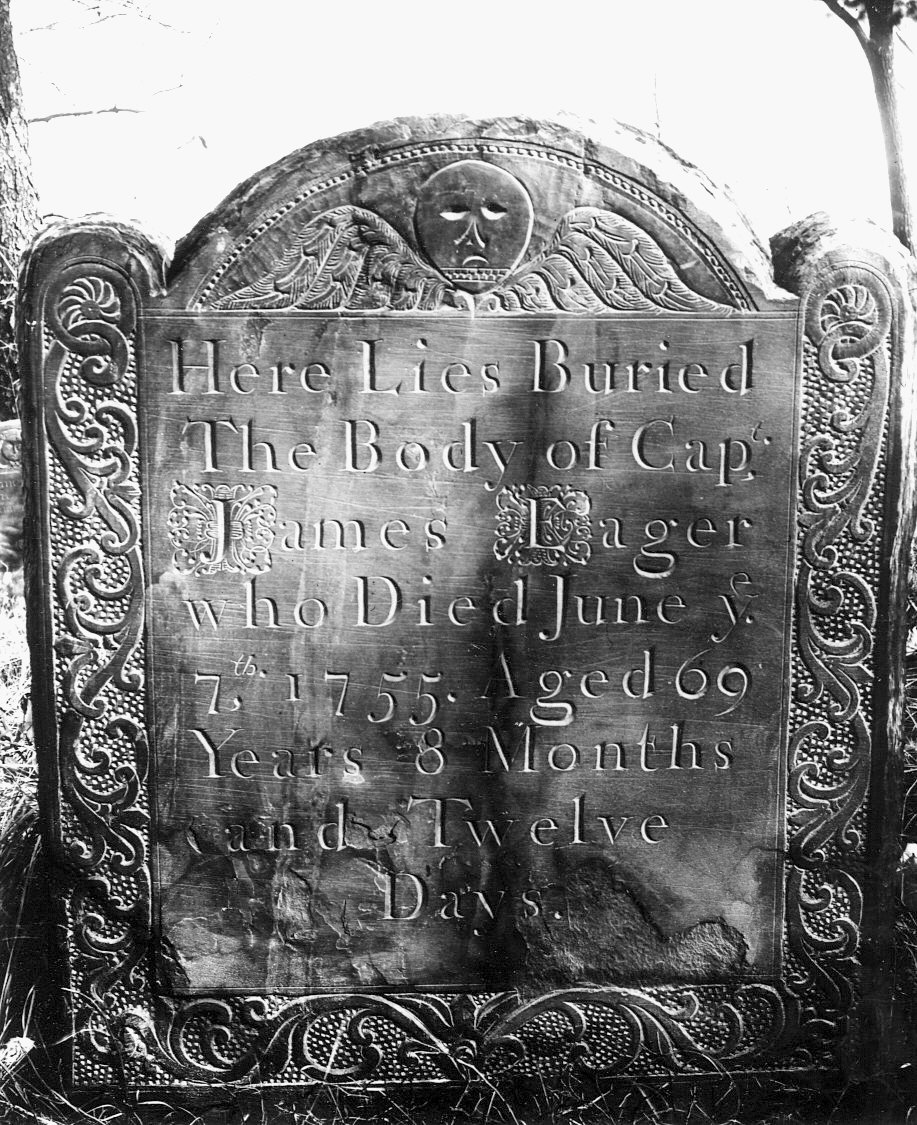 Here Lies Buried
The Body of Capᵗ.
James Eager
who Died June yᵉ.
7ᵗʰ. 1755. Aged 69
Years 8 Months
and Twelve
Days.